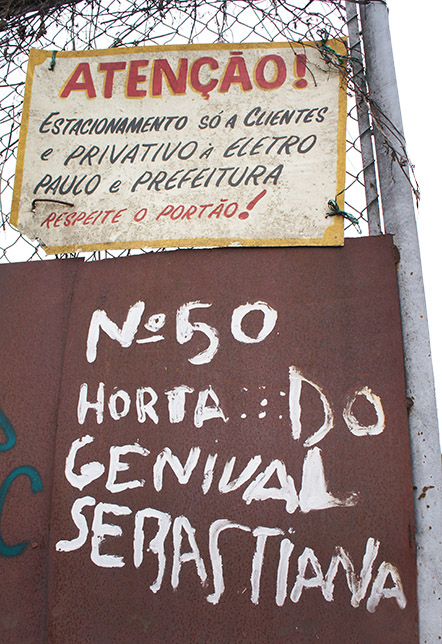 ATENÇÃO!
ESTACIONAMENTO SÓ A CLIENTES
E PRIVATIVO À ELETRO
PAULO E PREFEITURA
RESPEITE O PORTÃO!
Nº 50
HORTA ::: DO
GENIVAL
SEBASTIANA